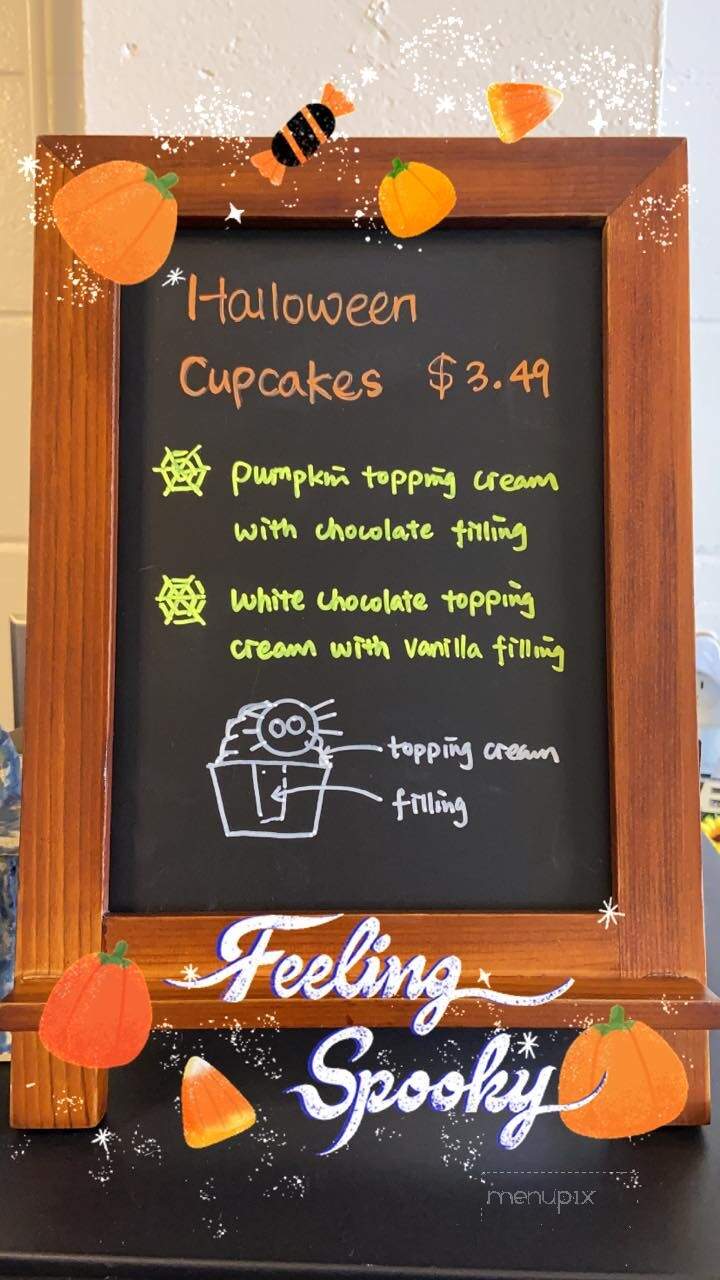 Halloween
Cupcakes $3.49
pumpkin topping cream
with chocolate filling
white chocolate topping
cream with vanilla filling
topping cream
filling
Feeling
Spooky
menupix